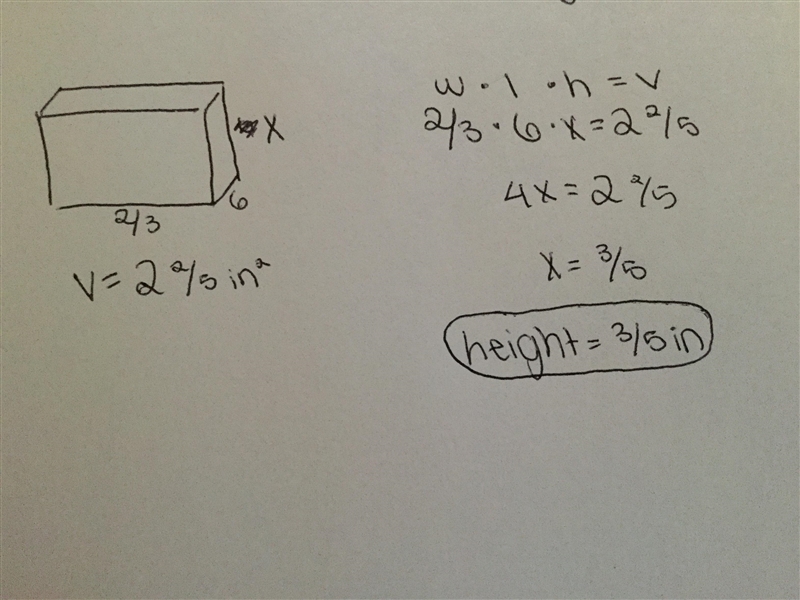 X
6
2/3
V = 2 2/5 in²
w · l · h = V
2/3 · 6 · x = 2 2/5
4x = 2 2/5
x = 3/5
height = 3/5 in